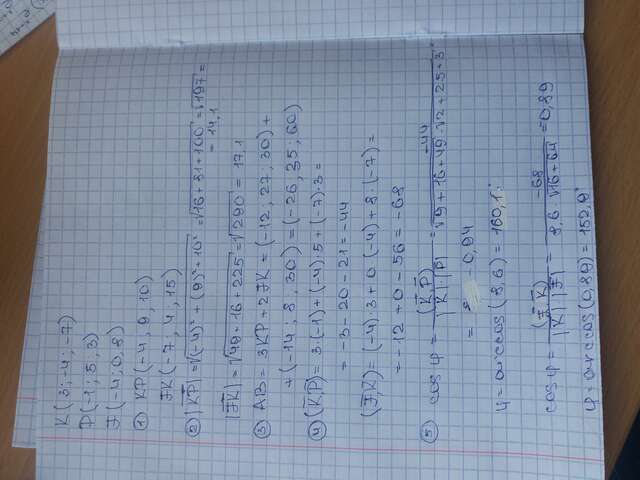 K(3;-4;-7)
P(-1;5;3)
F(-4;0,8)
① KP(-4,9,10)
FK(-7,4,15)
② |KP|=√(-4)²+(9)²+10²=√16+81+100=√197=
=14,1
|FK|=√49+16+225=√290=17,1
③ AB=3KP+2FK=(-12,27,30)+
+(-14;8,30)=(-26,35,60)
④ (K,P)=3·(-1)+(-4)·5+(-7)·3=
=-3-20-21=-44
(F,K)=(-4)·3+0·(-4)+8·(-7)=
=-12+0-56=-68
⑤ cosφ=(K,P)/|K||P|=-44/√9+16+49·√2+25+3
=-0,94
φ=arccos(8,6)=160,1°
cosφ=(F,K)/|K||F|=-68/8,6·√16+64=0,89
φ=arccos(0,89)=152,9°